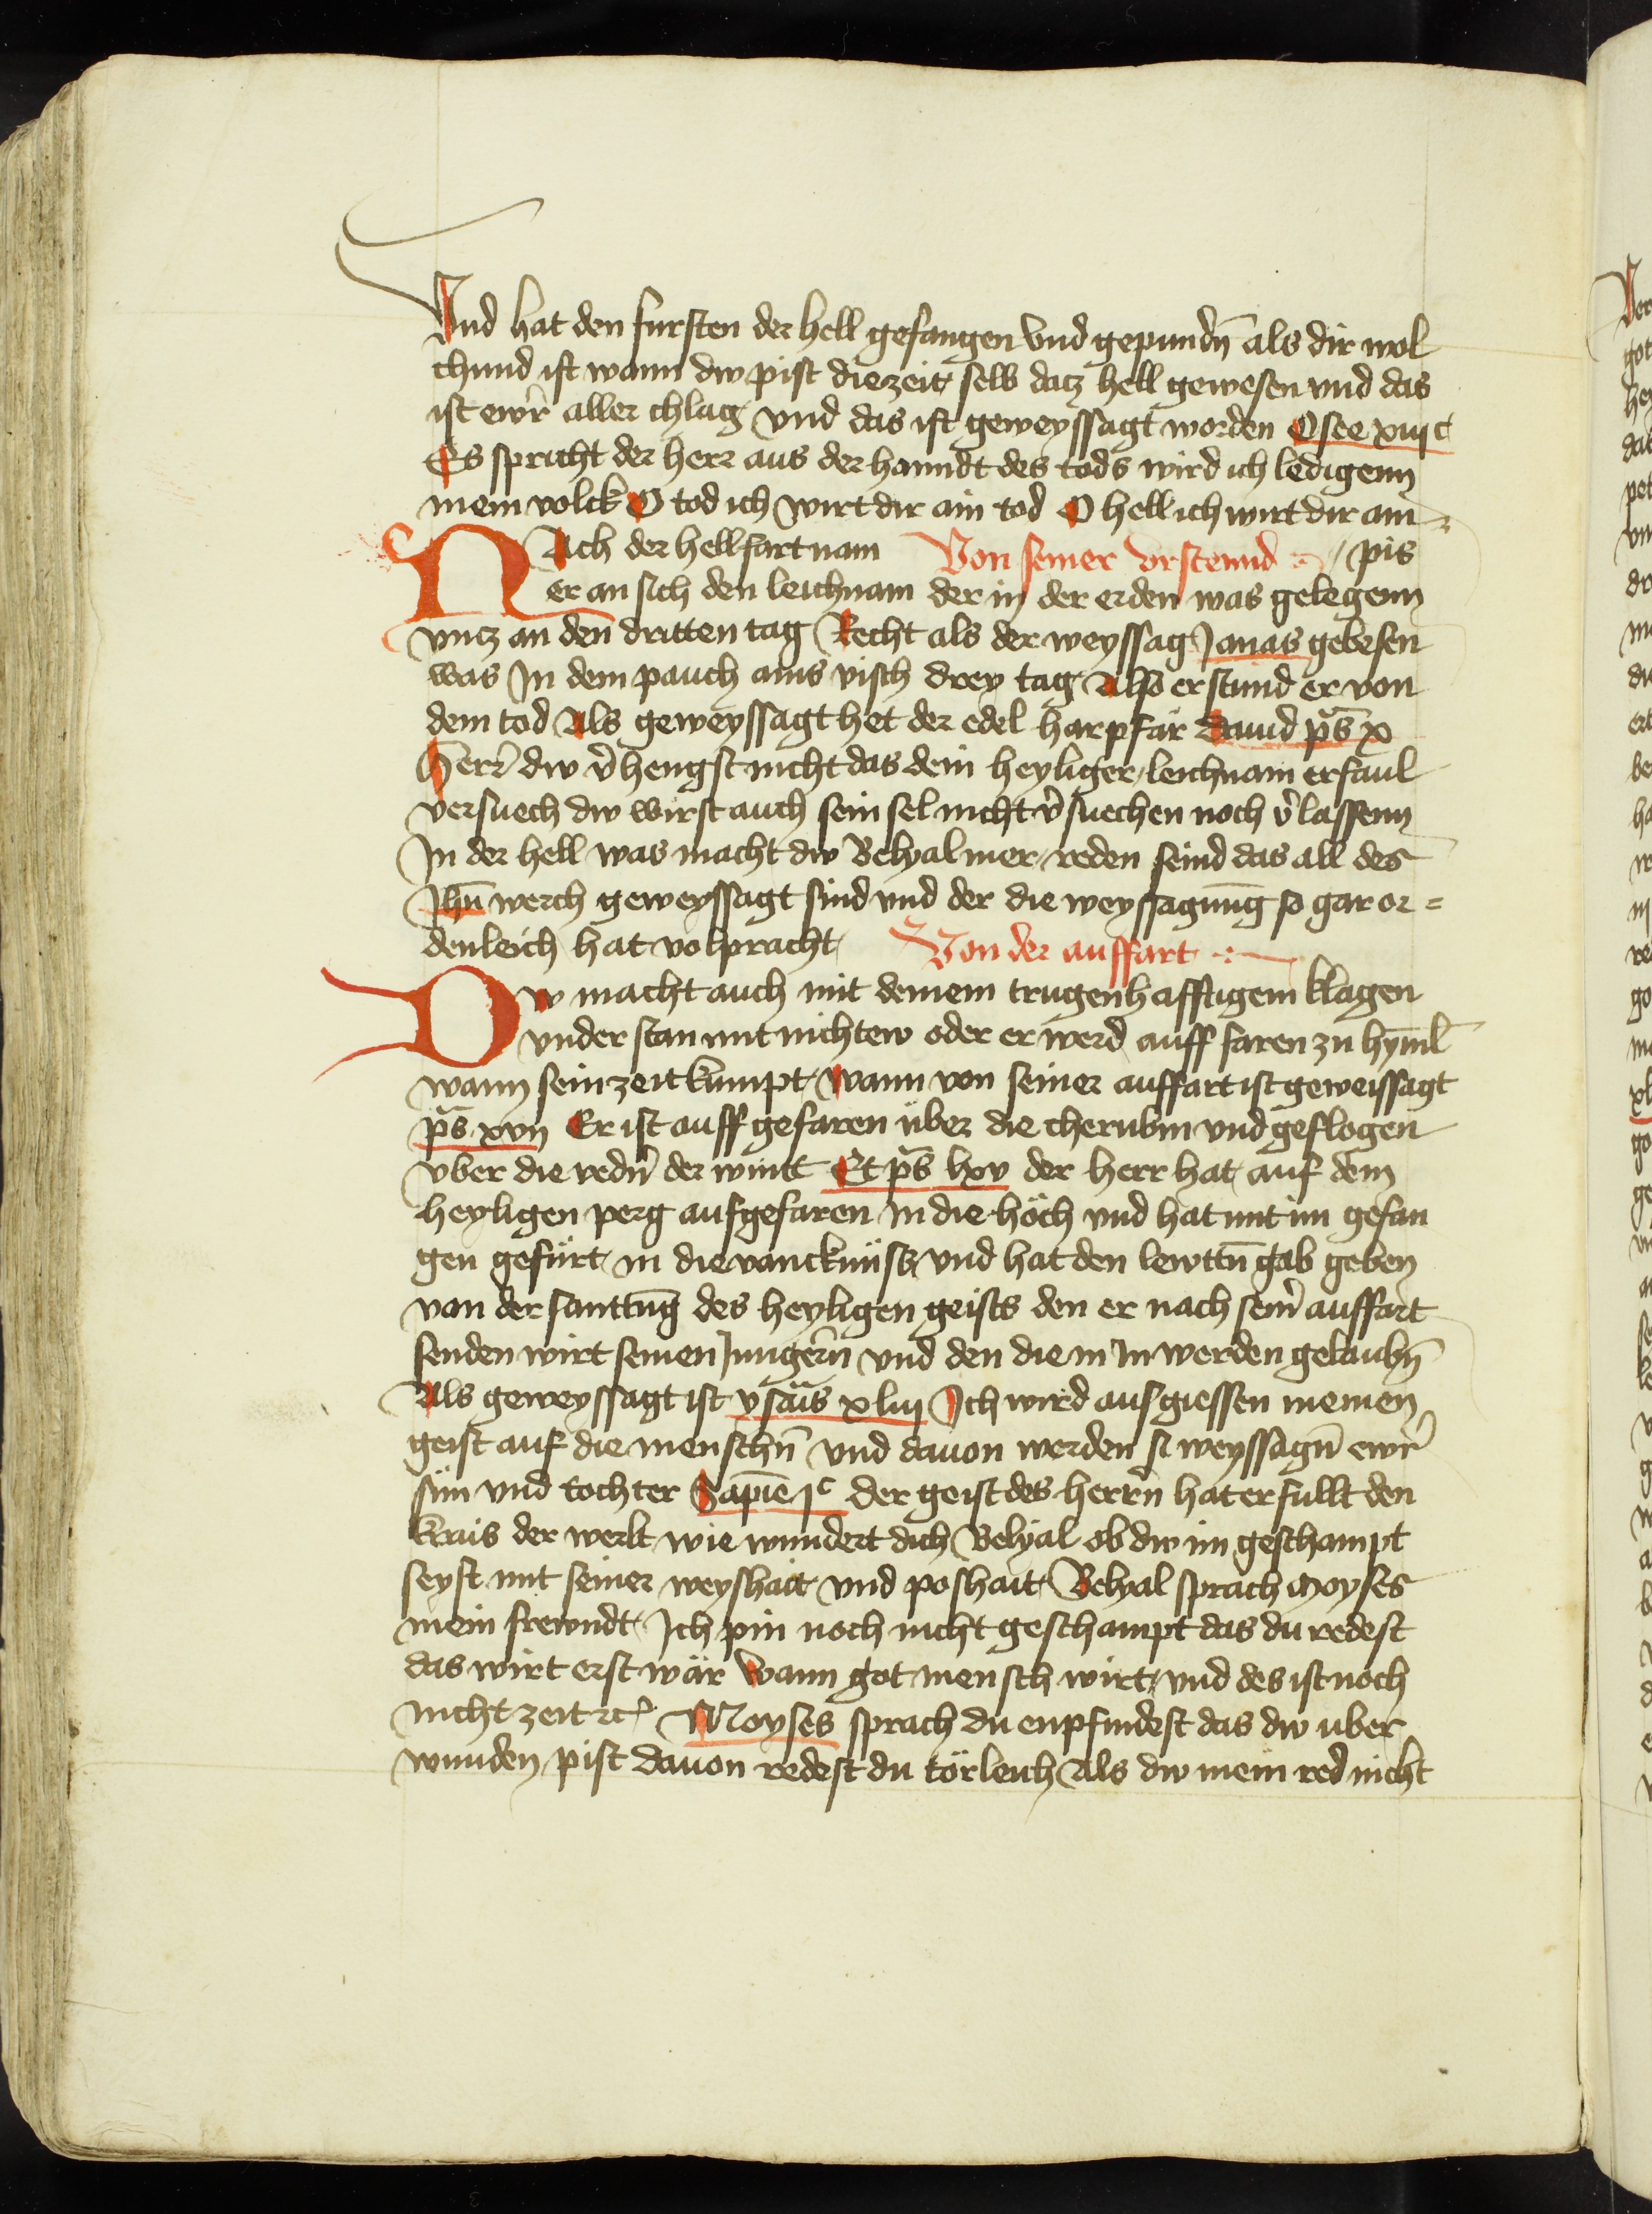 Vnd hat den fursten der hell gefangen vnd gepundn̄ als dir wol
chund ist wann dw pist die zeit selb datz hell gewesen vnd das
ist ewr̄ aller chlag vnd das ist geweyssagt worden Osee xiii c
Es spricht der herr aus der hanndt des tods wird ich ledigenn
mein volck O tod ich wirt dir ain tod O hell ich wirt dir ain
Nach der hellfart nam Von seiner vrstennd / pis
er an sich den leichnam der in der erden was gelegenn
vntz an den dritten tag Recht als der weyssag Jonas gebesen
was In dem pauch ains visch drey tag Also erstund er von
dem tod Als geweyssagt het der edel harpfär Dauid p̄s x
Herr̄ dw v̄hengst nicht das dein heyliger leichnam erfaul
versuech dw wirst auch sein sel nicht v̄suechen noch v̄lassenn
In der hell was macht dw Belyal mer reden seind das all des
Jhū werch geweyssagt sind vnd der die weyssagūng so gar or=
denleich hat volpracht Von der auffart
Dw macht auch mit deinem trugenhafftigem klagen
vnder stan mit nichtew oder er werd auff faren zu hȳml
wann sein zeit kumpt wann von seiner auffart ist geweissagt
p̄s xvii Er ist auff gefaren über die cherubin vnd geflogen
vber die vedn̄ der wint Et p̄s lxv der herr hat auf dem
heyligen perg aufgefaren in die höch vnd hat mit im gefan
gen gefürt in die vanckniss vnd hat den lewttn̄ gab geben
van der santtūg des heyligen geists den er nach sein̄ auffart
senden wirt seinen Jungern̄ vnd den die in In werden gelaubn̄
Als geweyssagt ist ysaīs xliii Ich wird ausgiessen meinen
geist auf die menschn̄ vnd dauon werden si weyssagn̄ ewr̄
sün vnd tochter Sapiē jc der geist des herrn̄ hat erfullt den
krais der werlt wie wundert dich Belyal ob dw im geschampt
seyst mit seiner weyshait vnd poshait Belyal sprach Moyses
mein frewndt Ich pin noch nicht geschampt das du redest
das wirt erst wär wann got mensch wirt vnd des ist noch
nicht zeit ꝛc Moyses sprach du enpfindest das dw vber
wunden pist dauon redest du törleich Als dw mein red nicht